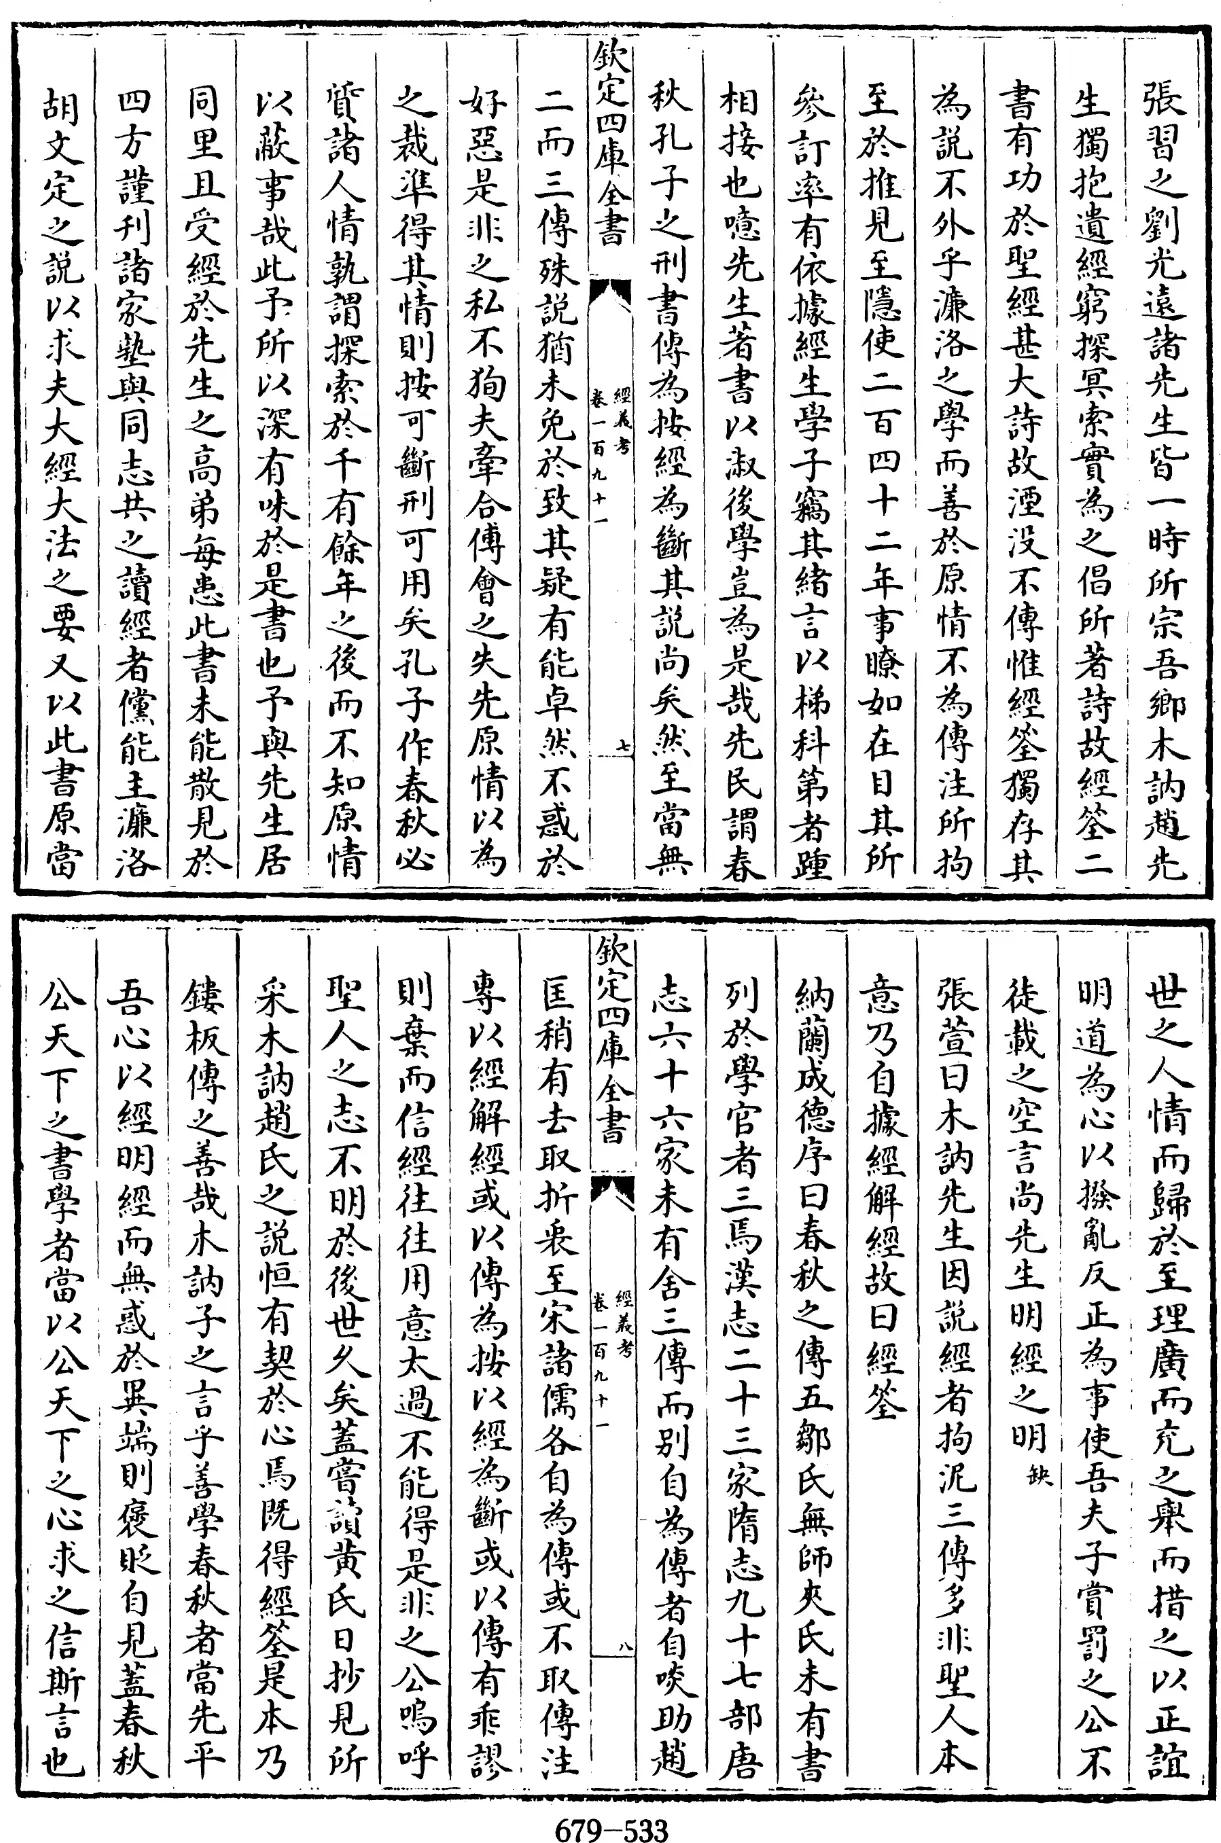 張習之劉光遠諸先生皆一時所宗吾鄉木訥趙先
生獨抱遺經窮探冥索實為之倡所著詩故經筌二
書有功於聖經甚大詩故湮没不傳惟經筌獨存其
為說不外乎濂洛之學而善於原情不為傳注所拘
至於推見至隱使二百四十二年事瞭如在目其所
參訂率有依據經生學子竊其緒言以梯科第者踵
相接也噫先生著書以淑後學豈為是哉先民謂春
秋孔子之刑書傳為按經為斷其說尚矣然至當無
欽定四庫全書
經義考
卷一百九十一
七
二而三傳殊說猶未免於致其疑有能卓然不惑於
好惡是非之私不狥夫牽合傅會之失先原情以為
之裁準得其情則按可斷刑可用矣孔子作春秋必
質諸人情孰謂探索於千有餘年之後而不知原情
以蔽事哉此予所以深有味於是書也予與先生居
同里且受經於先生之高弟每患此書未能散見於
四方謹刊諸家塾與同志共之讀經者儻能主濂洛
胡文定之說以求夫大經大法之要又以此書原當
世之人情而歸於至理廣而充之舉而措之以正誼
明道為心以撥亂反正為事使吾夫子賞罰之公不
徒載之空言尚先生明經之明缺
張萱曰木訥先生因說經者拘泥三傳多非聖人本
意乃自據經解經故曰經筌
納蘭成德序曰春秋之傳五鄒氏無師夾氏未有書
列於學官者三焉漢志二十三家隋志九十七部唐
志六十六家未有舍三傳而别自為傳者自啖助趙
欽定四庫全書
經義考
卷一百九十一
八
匡稍有去取折衷至宋諸儒各自為傳或不取傳注
專以經解經或以傳為按以經為斷或以傳有乖謬
則棄而信經往往用意太過不能得是非之公嗚呼
聖人之志不明於後世久矣蓋嘗讀黄氏日抄見所
采木訥趙氏之說恒有契於心焉既得經筌是本乃
鏤板傳之善哉木訥子之言乎善學春秋者當先平
吾心以經明經而無惑於異端則褒貶自見蓋春秋
公天下之書學者當以公天下之心求之信斯言也
679-533